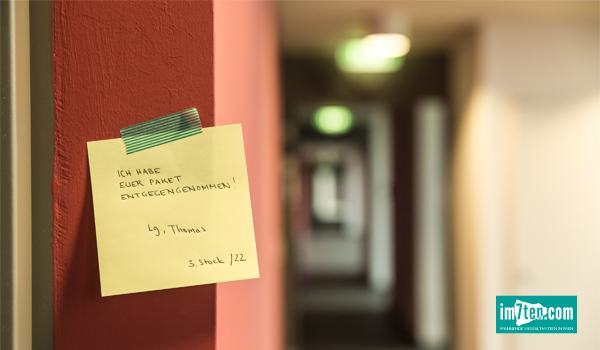 ICH HABE
EUER PAKET
ENTGEGENGENOMMEN!
Lg, Thomas
3. Stock /22
im7ten.com